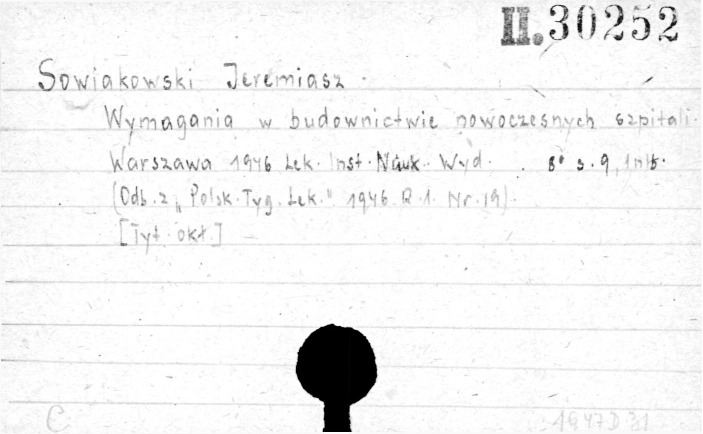 II.30252
Sowiakowski Jeremiasz.
Wymagania w budownictwie nowoczesnych szpitali.
Warszawa 1946 Lek. Inst. Nauk. Wyd. 8° s. 9, 1 nlb.
(Odb. z „Polsk. Tyg. Lek." 1946 R. 1. Nr. 19).
[Tyt. okł.]
C 1947 D 31